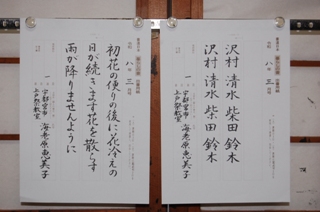 沢村 清水 柴田 鈴木
沢村 清水 柴田 鈴木
宇都宮市
上戸祭教室
海老原恵美子
初花の便りの後に花冷えの
日が続きます花を散らす
雨が降りませんように
宇都宮市
上戸祭教室
海老原恵美子